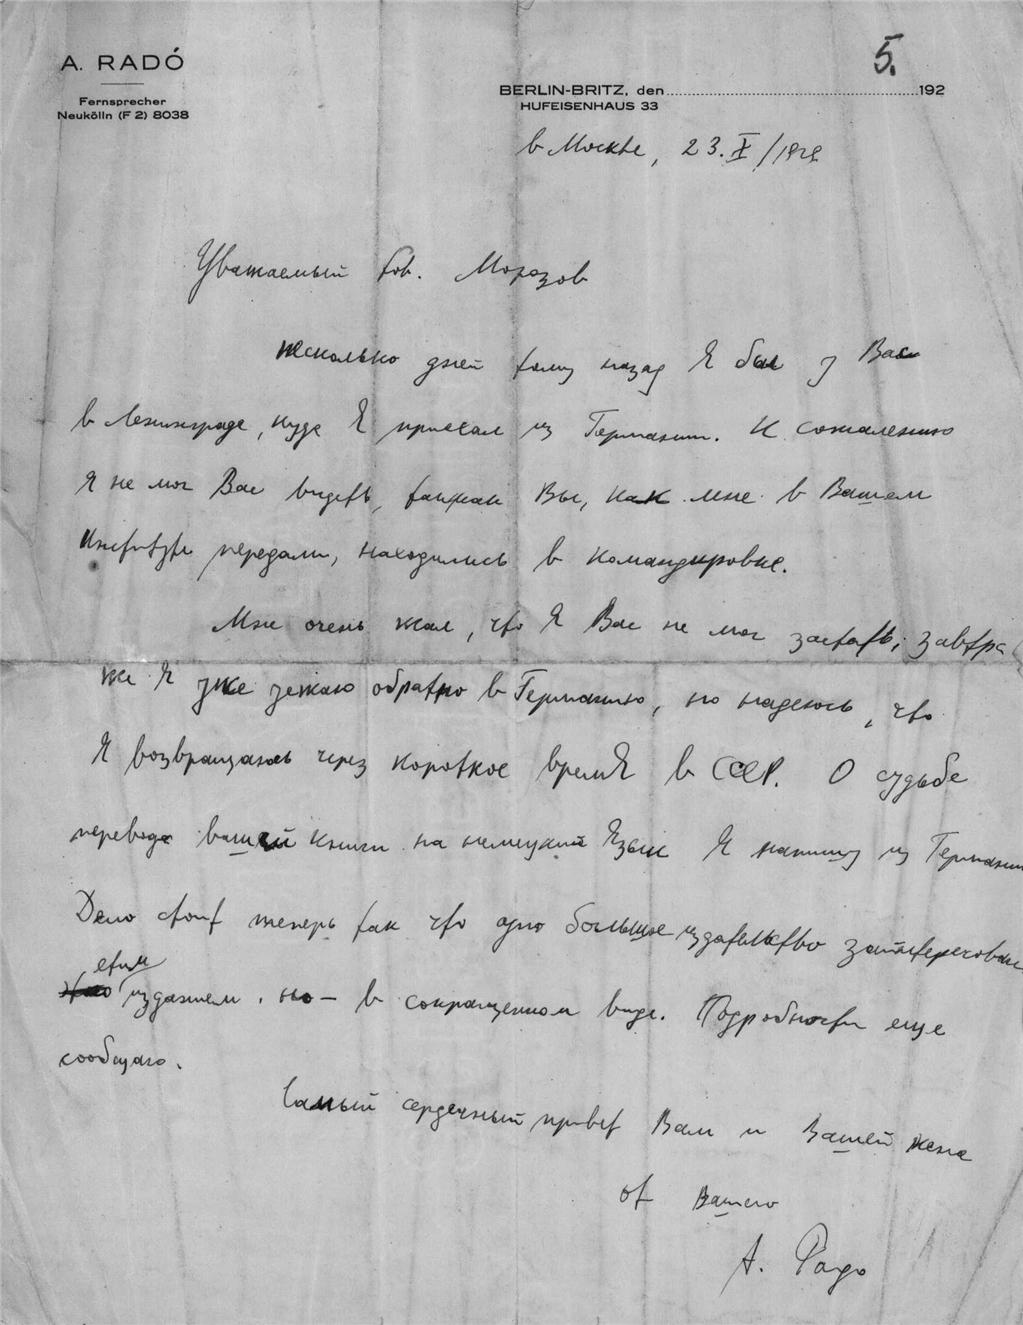 5.
A. RADÓ
Fernsprecher
Neukölln (F 2) 8038
BERLIN-BRITZ, den..............................192
HUFEISENHAUS 33
в Москве, 23. X/1929
Уважаемый тов. Морозов
несколько дней тому назад Я был у Вас
в Ленинграде, куда Я приехал из Германии. К сожалению
Я не мог Вас видеть, так как Вы, как мне в Вашем
Институте передали, находились в командировке.
Мне очень жал, что Я Вас не мог застать; завтра
же Я уже уежаю обратно в Германию, но надеюсь, что
Я возвращаюсь через короткое времЯ в СССР. О судьбе
перевода вашей книги на немецкий Язык Я напишу из Германии
Дело стоит теперь так что одно большое издательство заинтересовано
етим
изданием, но — в сокращенном виде. Подробности еще
сообщаю.
Самый сердечный привет Вам и Вашей жене
от Вашего
А. Радо